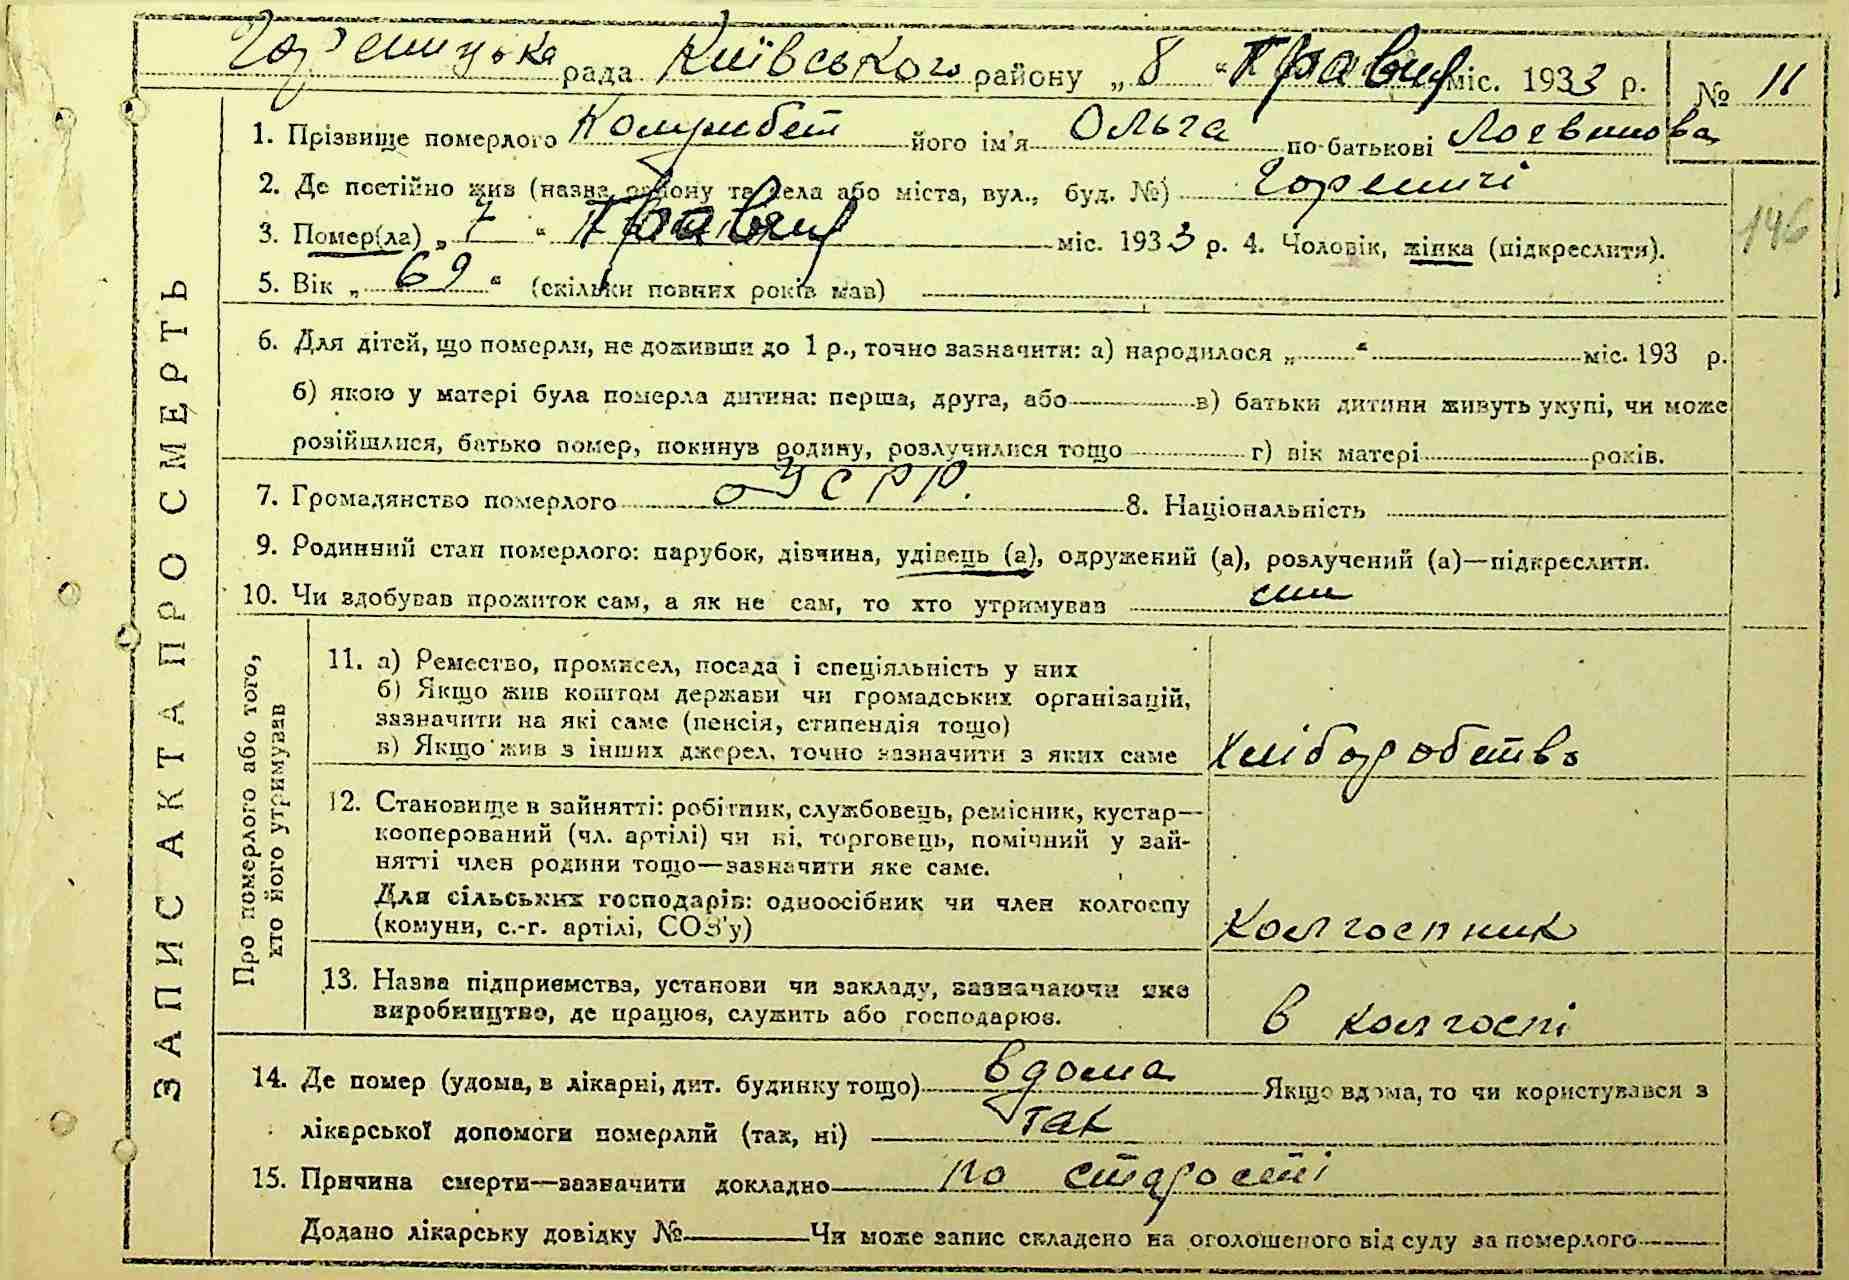 Гореницька рада Київського району „ 8 “ Травня міс. 1933 р. № 11
1. Прізвище померлого Колумбет його ім'я Ольга по-батькові Логвинова
2. Де постійно жив (назва району та села або міста, вул., буд. №) Гореничі
3. Помер(ла) „ 7 “ Травня міс. 1933 р. 4. Чоловік, жінка (підкреслити).
146
5. Вік „ 69 “ (скільки повних років мав)
6. Для дітей, що померли, не доживши до 1 р., точно зазначити: а) народилося „ “ міс. 193 р.
б) якою у матері була померла дитина: перша, друга, або в) батьки дитини живуть укупі, чи може
розійшлися, батько помер, покинув родину, розлучилися тощо г) вік матері років.
7. Громадянство померлого УСРР. 8. Національність
9. Родинний стан померлого: парубок, дівчина, удівець (а), одружений (а), розлучений (а)—підкреслити.
10. Чи здобував прожиток сам, а як не сам, то хто утримував син
ЗАПИС АКТА ПРО СМЕРТЬ
Про померлого або того,
хто його утримував
11. а) Ремество, промисел, посада і спеціяльність у них
б) Якщо жив коштом держави чи громадських організацій,
зазначити на які саме (пенсія, стипендія тощо)
в) Якщо жив з інших джерел, точно зазначити з яких саме хліборобство
12. Становище в зайнятті: робітник, службовець, ремісник, кустар—
кооперований (чл. артілі) чи ні, торговець, помічний у зай-
нятті член родини тощо—зазначити яке саме.
Для сільських господарів: одноосібник чи член колгоспу
(комуни, с.-г. артілі, СОЗ'у) колгоспник
13. Назва підприємства, установи чи закладу, зазначаючи яке
виробництво, де працює, служить або господарює. в колгоспі
14. Де помер (удома, в лікарні, дит. будинку тощо) вдома Якщо вдома, то чи користувався з
лікарської допомоги померлий (так, ні) так
15. Причина смерти—зазначити докладно по старості
Додано лікарську довідку № Чи може запис складено на оголошеного від суду за померлого